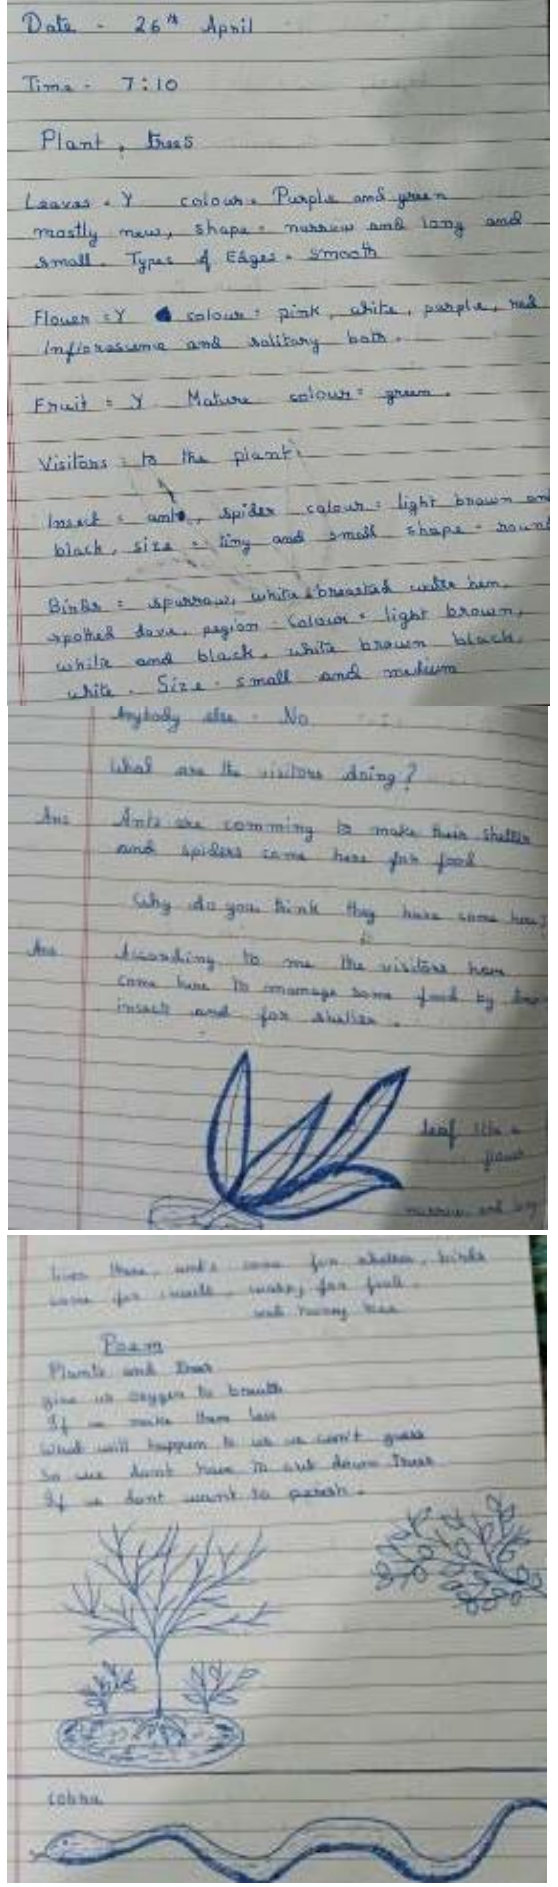 Date - 26th April
Time - 7:10
Plant, trees
Leaves = Y colour = Purple and green
mostly new, shape = narrow and long and
small. Types of Edges = smooth
Flower = Y colour = pink, white, purple, red
and solitary both.
Fruit = Y Mature colour = green.
Visitors = to the plant
Insect = ants, spider colour = light brown and
black, size = tiny and small shape = round
Birds = sparrow, white breasted water hen,
spotted dove, pegion. Colour = light brown,
white and black, white brown black,
white. Size = small and medium
Anybody else - No
What are the visitors doing?
Ans Ants are comming to make their shelter
and spiders come here for food
Why do you think they have come here?
Ans According to me the visitors have
come here to manage some food by
insects and for shelter.
leaf like a
flower
narrow and long
lives there, ants come for shelter, birds
come for insects, for fruit.
and honey bee
Poem
Plants and trees
give us oxygen to breath
If we make them less
What will happen to us we can't guess
So we dont have to cut down trees
If we dont want to perish.
cobra